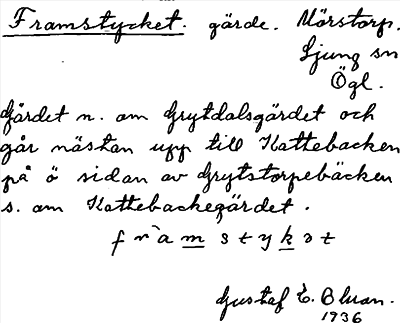 Framstycket. gärde. Mörstorp.
Ljung sn
Ögl.
Gärdet n. om Grytdalsgärdet och
går nästan upp till Kattebacken
på ö sidan av Grytstorpebäcken
s. om Kattebackegärdet.
fràmstykət
Gustaf E. Bluan.
1936